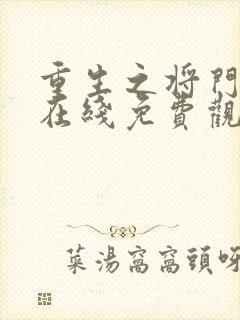 重生之将門
在綫免費觀
菜湯窩窩頭呀